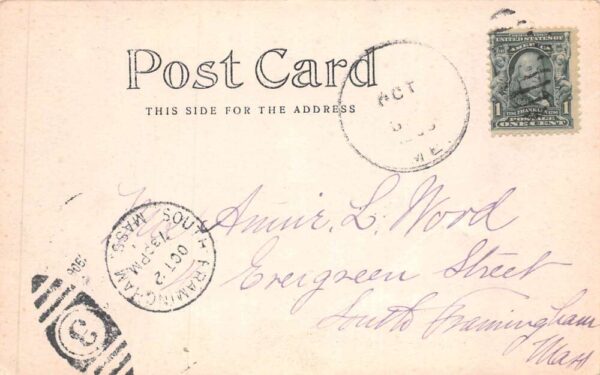 Post Card
THIS SIDE FOR THE ADDRESS
OCT
ME.
UNITED STATES OF
AMERICA
1 1
FRANKLIN
POSTAGE
ONE CENT
L. Word
Evergreen Street
South Framingham
Mass
SOUTH FRAMINGHAM
MASS.
OCT 2
PM
3